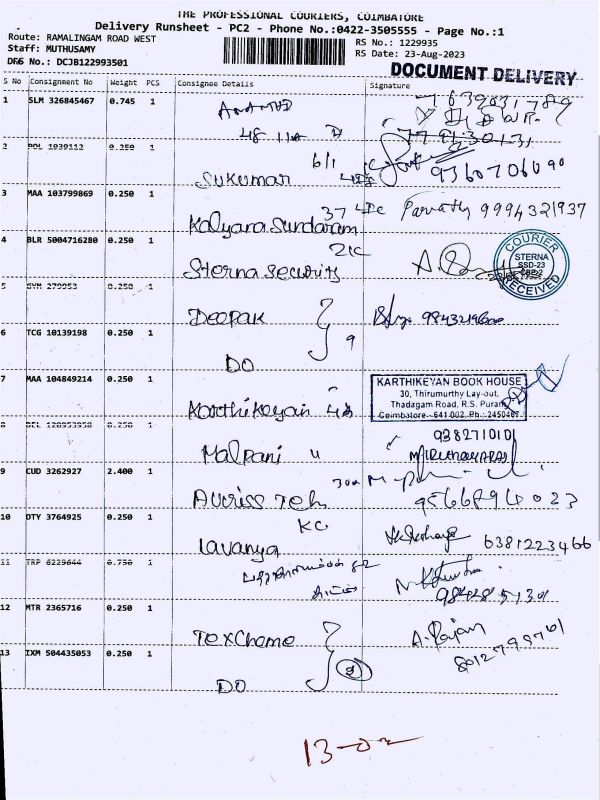 THE PROFESSIONAL COURIERS, COIMBATORE
Delivery Runsheet - PC2 - Phone No.:0422-3505555 - Page No.:1
Route: RAMALINGAM ROAD WEST
RS No.: 1229935
Staff: MUTHUSAMY
RS Date: 23-Aug-2023
DRS No.: DCJB122993501
DOCUMENT DELIVERY
S No Consignment No Weight PCS Consignee Details Signature
1 SLM 326845467 0.745 1 Anand 7639031789
48 11a
779130131
2 POL 1939112 0.250 1 6/1
Sukumar 9360706090
3 MAA 103799869 0.250 1 37 Parvathy 9994321937
Kalyana Sundaram
4 BLR 5004716280 0.250 1 21c
Sterna security
COURIER
STERNA
SSD-23
CBE-2
RECEIVED
5 GYM 279953 0.250 1 Deepak
6 TCG 10139198 0.250 1 9
DO
7 MAA 104849214 0.250 1 Karthikeyan 48
KARTHIKEYAN BOOK HOUSE
30, Thirumurthy Lay-out,
Thadagam Road, R.S. Puram
Coimbatore - 641 002. Ph.: 2450467
8 DEL 128953958 0.250 1 Malpani 11
938271010
9 CUD 3262927 2.400 1 30a
Auriss Teh 9566894023
10 DTY 3764925 0.250 1 KC
Lavanya 6381223466
11 TRP 6229644 0.750 1 82
9842851301
12 MTR 2365716 0.250 1 Texchome A. Rajan
8012799701
13 IXM 504435053 0.250 1 9
DO
13-02